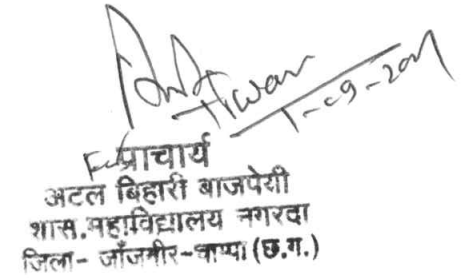 Tiwari
For प्राचार्य
अटल बिहारी बाजपेयी
शास.महाविद्यालय नगरदा
जिला- जाँजगीर-चाम्पा (छ.ग.)